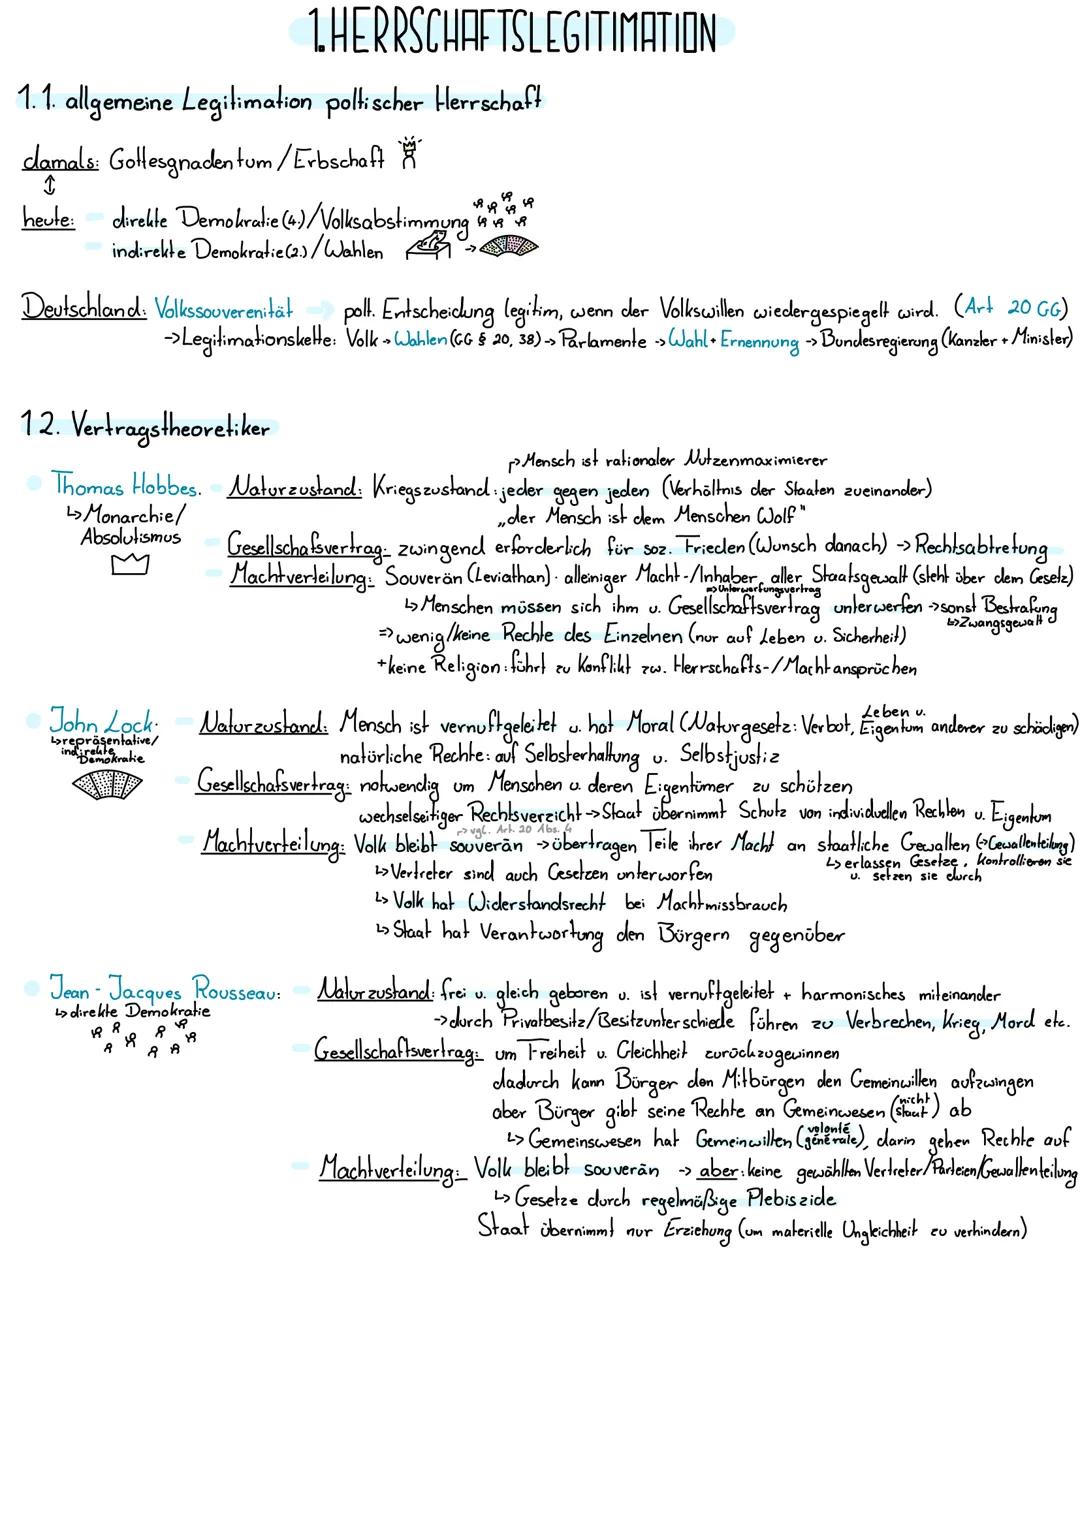 1. HERRSCHAFTSLEGITIMATION
1.1. allgemeine Legitimation poltischer Herrschaft
damals: Gottesgnadentum/Erbschaft
heute: direkte Demokratie (4.)/Volksabstimmung
indirekte Demokratie (2.)/Wahlen
Deutschland: Volkssouverenität → polt. Entscheidung legitim, wenn der Volkswillen wiedergespiegelt wird. (Art 20 GG)
→ Legitimationskette: Volk → Wahlen (GG § 20, 38) → Parlamente → Wahl + Ernennung → Bundesregierung (Kanzler + Minister)
1.2. Vertragstheoretiker
↱ Mensch ist rationaler Nutzenmaximierer
Thomas Hobbes. Naturzustand: Kriegszustand: jeder gegen jeden (Verhältnis der Staaten zueinander)
↳ Monarchie/
Absolutismus
„der Mensch ist dem Menschen Wolf"
Gesellschafsvertrag: zwingend erforderlich für soz. Frieden (Wunsch danach) → Rechtsabtretung
Machtverteilung: Souverän (Leviathan). alleiniger Macht-/Inhaber aller Staatsgewalt (steht über dem Gesetz)
⇒ Unterwerfungsvertrag
↳ Menschen müssen sich ihm u. Gesellschaftsvertrag unterwerfen → sonst Bestrafung
↳ Zwangsgewalt
⇒ wenig/keine Rechte des Einzelnen (nur auf Leben u. Sicherheit)
+ keine Religion: führt zu Konflikt zw. Herrschafts-/Machtansprüchen
John Lock: Naturzustand: Mensch ist vernuftgeleitet u. hat Moral (Naturgesetz: Verbot, Leben u. Eigentum anderer zu schädigen)
↳ repräsentative/
indirekte
Demokratie
natürliche Rechte: auf Selbsterhaltung u. Selbstjustiz
Gesellschafsvertrag: notwendig um Menschen u. deren Eigentümer zu schützen
wechselseitiger Rechtsverzicht → Staat übernimmt Schutz von individuellen Rechten u. Eigentum
↱ vgl. Art. 20 Abs. 4
Machtverteilung: Volk bleibt souverän → übertragen Teile ihrer Macht an staatliche Gewalten (→ Gewaltenteilung)
↳ erlassen Gesetze, kontrollieren sie
u. setzen sie durch
↳ Vertreter sind auch Gesetzen unterworfen
↳ Volk hat Widerstandsrecht bei Machtmissbrauch
↳ Staat hat Verantwortung den Bürgern gegenüber
Jean-Jacques Rousseau: Naturzustand: frei u. gleich geboren u. ist vernuftgeleitet + harmonisches miteinander
↳ direkte Demokratie
→ durch Privatbesitz/Besitzunterschiede führen zu Verbrechen, Krieg, Mord etc.
Gesellschaftsvertrag: um Freiheit u. Gleichheit zurückzugewinnen
dadurch kann Bürger den Mitbürgen den Gemeinwillen aufzwingen
aber Bürger gibt seine Rechte an Gemeinwesen (nicht Staat) ab
↳ Gemeinswesen hat Gemeinwillen (volonté générale), darin gehen Rechte auf
Machtverteilung: Volk bleibt souverän → aber: keine gewählten Vertreter/Parteien/Gewaltenteilung
↳ Gesetze durch regelmäßige Plebiszide
Staat übernimmt nur Erziehung (um materielle Ungleichheit zu verhindern)